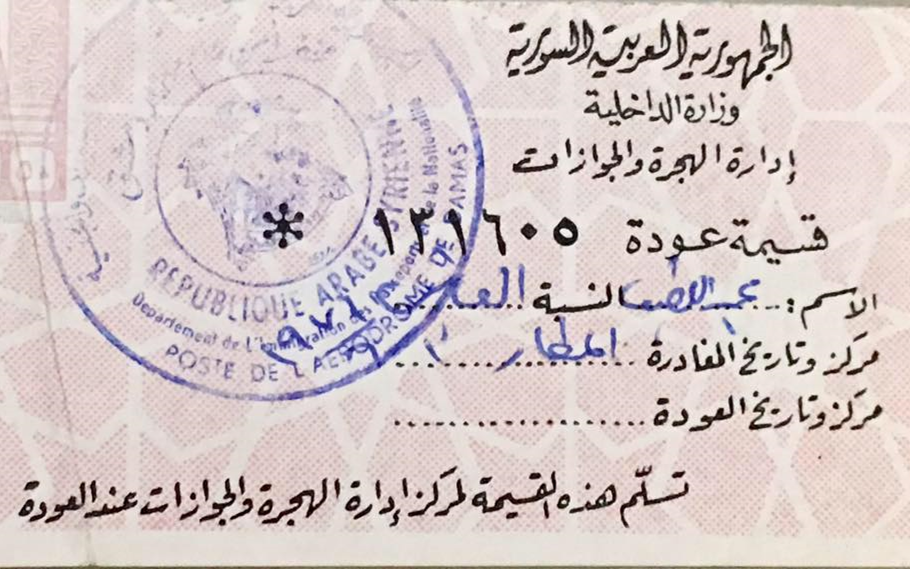 الجمهورية العربية السورية
وزارة الداخلية
إدارة الهجرة والجوازات
قسيمة عودة ١٣١٦٠٥ *
الاسم: عبد اللطيف النسبة
مركز وتاريخ المغادرة المطار
مركز وتاريخ العودة
تسلّم هذه القسيمة لمركز إدارة الهجرة والجوازات عند العودة
REPUBLIQUE ARABE SYRIENNE
Departement de L'immigration des Passeports et de la Nationalite
POSTE DE L'AERODROME DE DAMAS